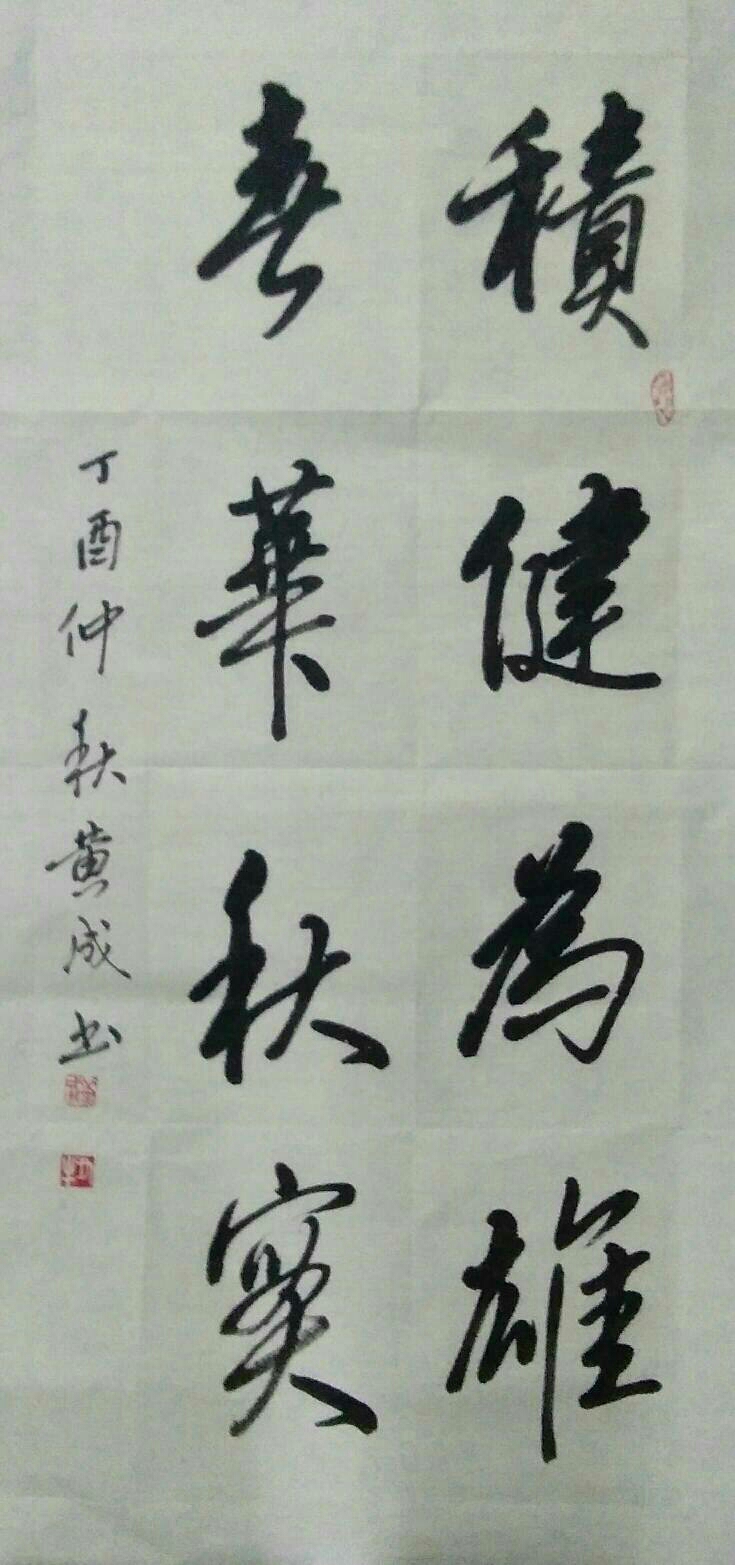 積健為雄
春華秋實
丁酉仲秋黄成书